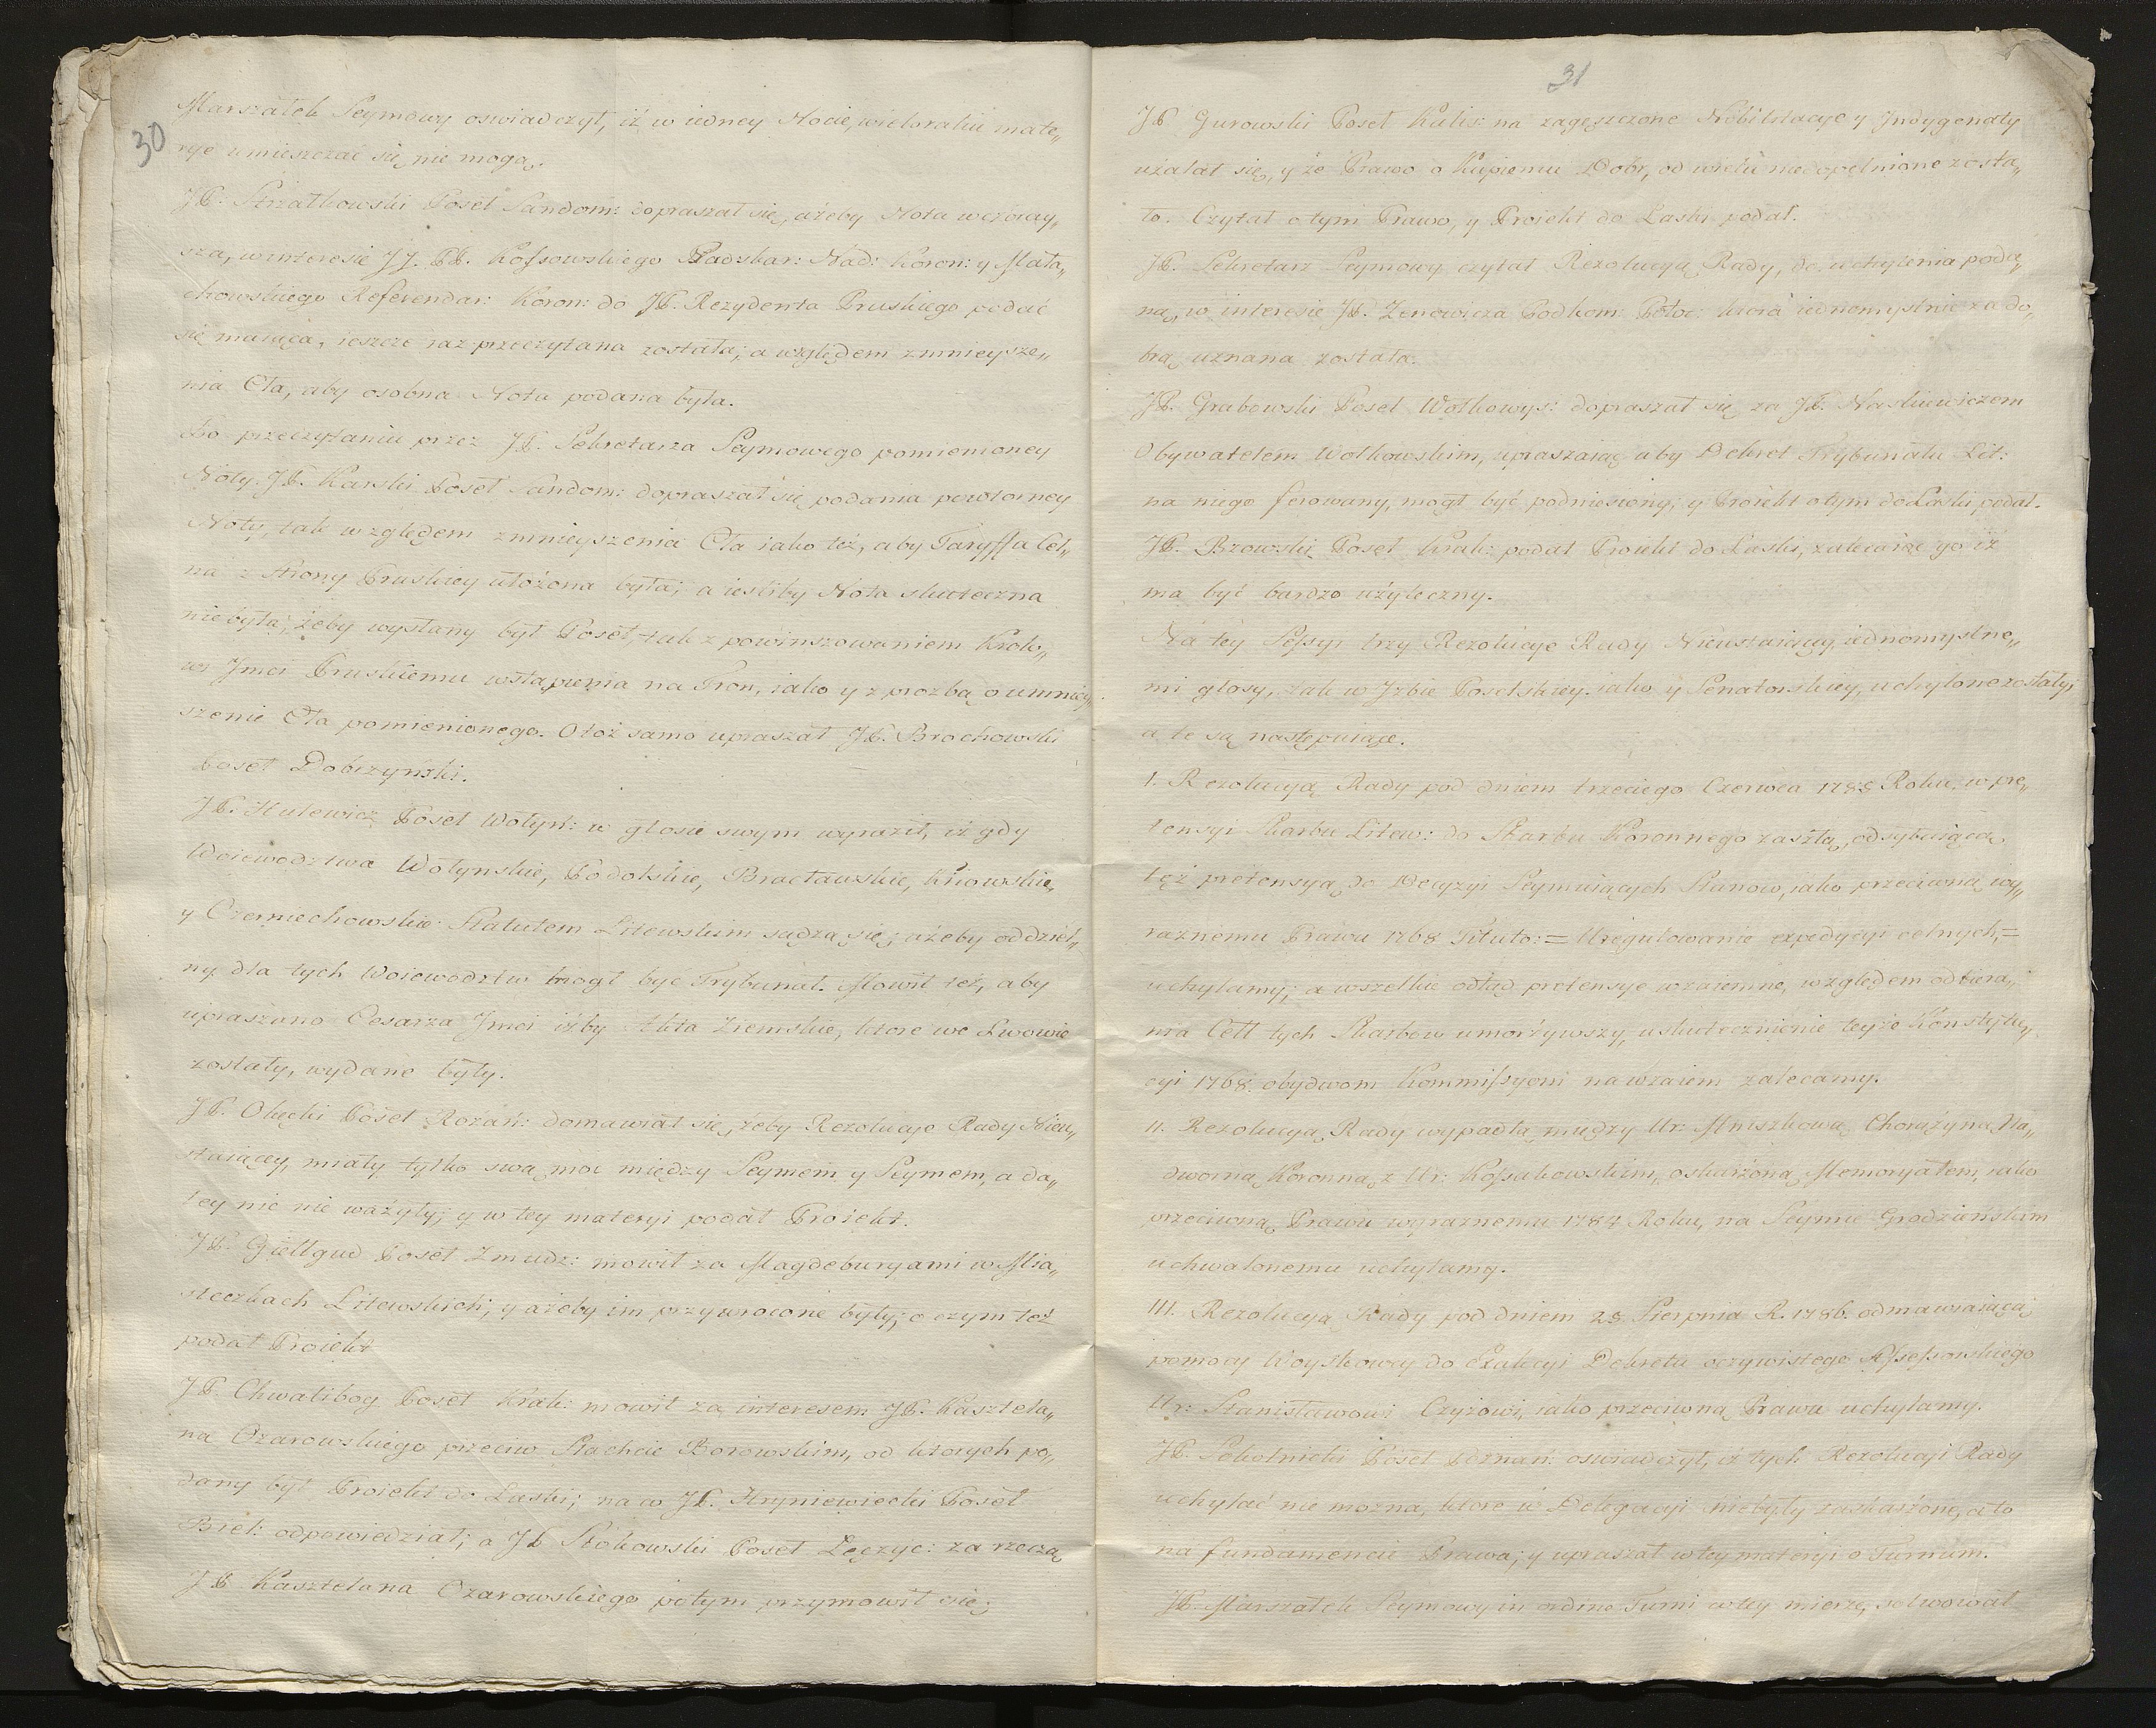 30
Marszałek Seymowy oswiadczył, iż w iedney Nocie, wielorakie mate„
rye umieszczać się nie mogą.
JP. Strzałkowski Poseł Sandom: dopraszał się, ażeby Nota wczoray„
sza, w interesie JJ. PP. Kossowskiego Podskar: Nad: Koron: y Mała„
chowskiego Referendar: Koron: do JP. Rezydenta Pruskiego podać
się maiąca, ieszcze raz przeczytana została; a względem zmnieysze„
nia Cła, aby osobna Nota podana była.
Po przeczytaniu przez JP. Sekretarza Seymowego pomienioney
Noty. JP. Karski Poseł Sandom: dopraszał się podania powtorney
Noty, tak względem zmnieyszenia Cła iako też, aby Taryffa Cel„
na z strony Pruskiey ułożona była; a ieśliby Nota skuteczna
niebyła, żeby wysłany był Poseł, tak z powinszowaniem Krolo„
wi Jmci Pruskiemu wstąpienia na Tron, iako y z prozbą o umniey„
szenie Cła pomienionego. O toż samo upraszał JP. Brochowski
Poseł Dobrzyński.
JP. Hulewicz Poseł Wołyń: w głosie swym wyraził, iż gdy
Woiewodztwa Wołynskie, Podolskie, Bracławskie, Kiiowskie,
y Czerniechowskie Statutem Litewskim sądzą się; ażeby oddziel„
ny dla tych Woiewodztw mogł być Trybunał. Mowił też, aby
upraszano Cesarza Jmci iżby Akta Ziemskie, ktore we Lwowie
zostały, wydane były.
JP. Olęcki Poseł Rożań: domawiał się, żeby Rezolucye Rady Nieu„
staiącey, miały tylko swą moc między Seymem y Seymem, a da„
ley nic nie ważyły; y w tey materyi podał Proiekt.
JP. Giełłgud Poseł Zmudz: mowił za Magdeburyami w Mia„
steczkach Litewskich, y ażeby im przywrocone były; o czym też
podał Proiekt
JP. Chwalibog Poseł Krak: mowił za interesem JP. Kasztela„
na Ożarowskiego przeciw Szlachcie Borowskim, od ktorych po„
dany był Proiekt do Laski; na co JP. Hryniewiecki Poseł
Brel: odpowiedział; a JP. Stokowski Poseł Łęczyc: za rzeczą
JP. Kasztelana Ożarowskiego potym przymowił się;
31
JP. Gurowski Poseł Kalis: na zagęszczone Nobilitacye y Jndygenaty
użalał się, y że Prawo o Kupieniu Dobr, od wielu niedopełnione zosta„
ło. Czytał o tym Prawo, y Proiekt do Laski podał.
JP. Sekretarz Seymowy czytał Rezolucyą Rady, do uchylenia poda„
ną, w interesie JP. Zenowicza Podkom: Połoc: ktora iednomyslnie za do„
brą uznana została.
JP. Grabowski Poseł Wołkowys: dopraszał się za JP. Naskiewiczem
Obywatelem Wołkowskim, upraszaiąc aby Dekret Trybunału Lit:
na niego ferowany, mogł być podniesiony; y Proiekt o tym do Laski podał.
JP. Bzowski Poseł Krak: podał Proiekt do Laski, zalecaiąc go iż
ma być bardzo użyteczny.
Na tey Sessyi trzy Rezolucye Rady Nieustaiącey, iednomyslne„
mi głosy, tak w Jzbie Poselskiey iako y Senatorskiey, uchylone zostały;
a te są następuiące.
I. Rezolucyą Rady pod dniem trzeciego Czerwca 1785 Roku, w pre„
tensyi Skarbu Litew: do Skarbu Koronnego zaszłą, odsyłaiącą
tęż pretensyą do Decyzyi Seymuiących Stanow, iako przeciwną wy„
raznemu Prawu 1768 Tituło: = Uregulowanie expedycyi celnych, =
uchylamy; a wszelkie odtąd pretensye wzaiemne, względem odbiera„
nia Cell tych Skarbow umorzywszy, uskutecznienie teyże Konstytu„
cyi 1768. obydwom Kommissyom nawzaiem zalecamy.
II. Rezolucyą Rady wypadłą między Ur: Mniszkową Chorążyną Na„
dworną Koronną, z Ur: Kossakowskim, oskarżoną Memoryałem, iako
przeciwną Prawu wyraznemu 1784 Roku, na Seymie Grodzieńskim
uchwalonemu uchylamy.
III. Rezolucyą Rady pod dniem 25 Sierpnia R. 1786. odmawiaiącą
pomocy Woyskowey do Exekcyi Dekretu oczywistego Assessorskiego
Ur: Stanisławowi Czyżowi, iako przeciwną Prawu uchylamy.
JP. Sokolnicki Poseł Poznań: oswiadczył, iż tych Rezolucyi Rady
uchylać nie można, ktore w Delegacyi niebyły zaskarżone, a to
na fundamencie Prawa; y upraszał w tey materyi o Turnum.
JP. Marszałek Seymowy in ordine Turni w tey mierze, solwował